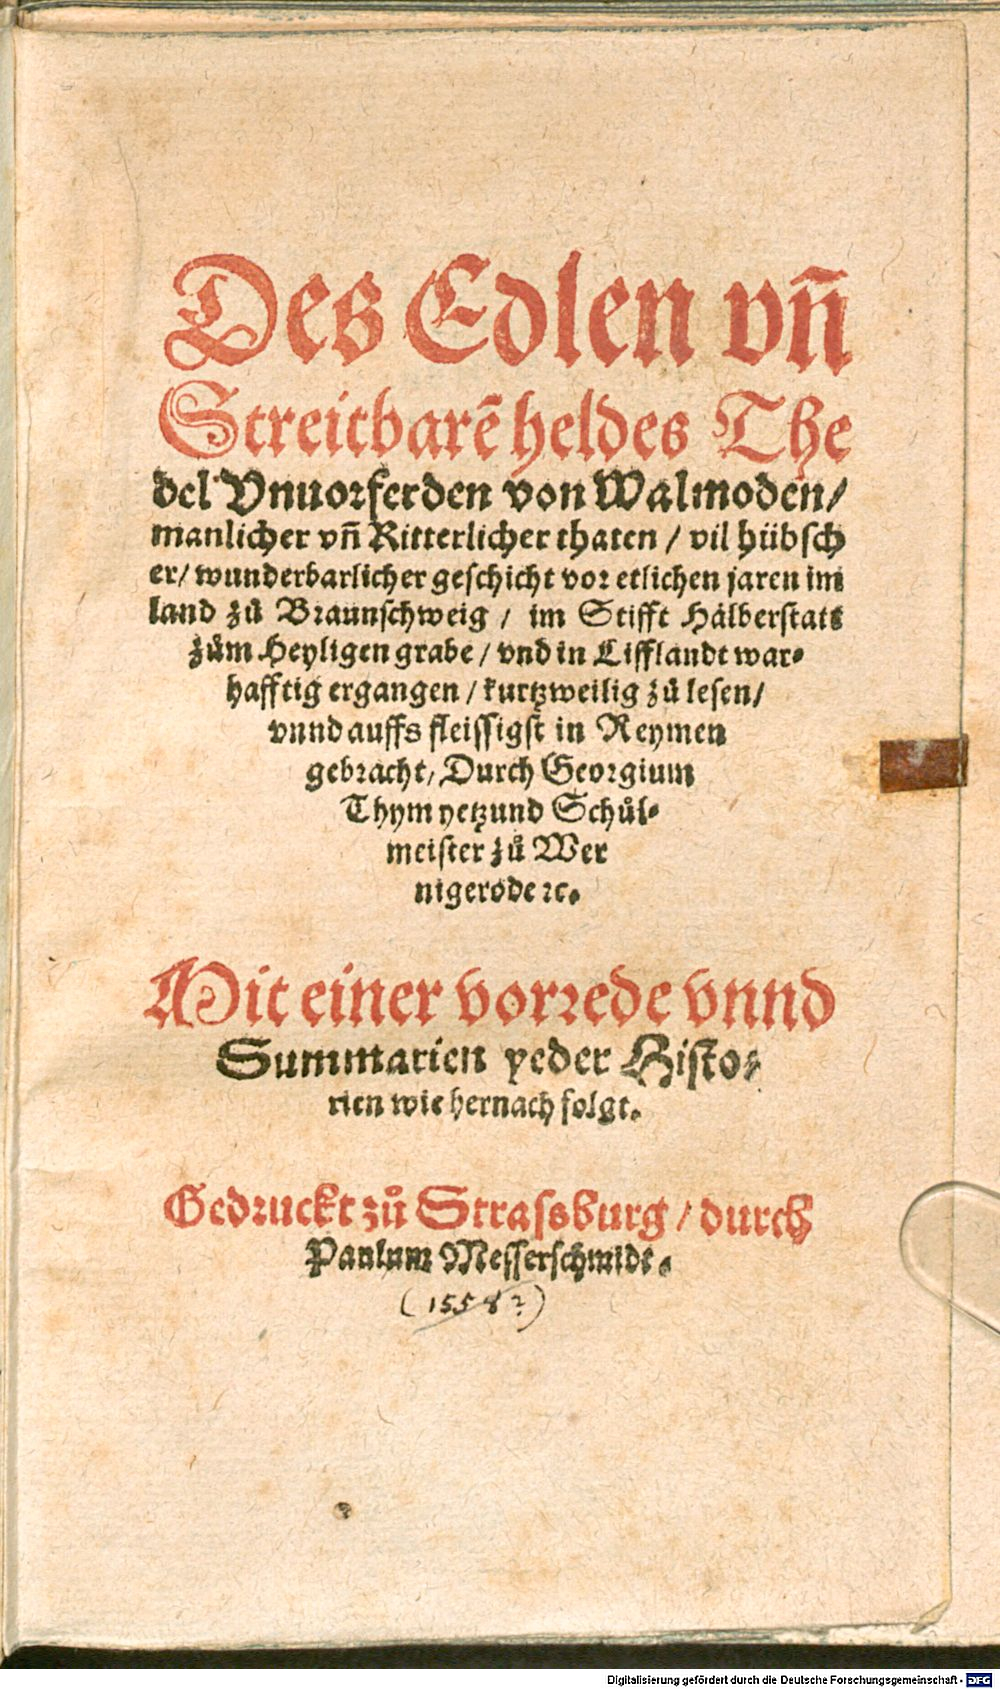 Des Edlen vñ
Streitbarẽ heldes The
del Vnuorferden von Walmoden/
manlicher vñ Ritterlicher thaten / vil hübsch
er/ wunderbarlicher geschicht vor etlichen jaren im
land zů Braunschweig / im Stifft Halberstatt
zům Heyligen grabe / vnd in Lifflandt war-
hafftig ergangen / kurtzweilig zů lesen/
vnnd auffs fleissigst in Reymen
gebracht/ Durch Georgium
Thym yetzund Schůl-
meister zů Wer
nigerode ꝛc.
Mit einer vorrede vnnd
Summarien yeder Histo-
rien wie hernach folgt.
Gedruckt zů Strassburg / durch
Paulum Messerschmidt.
(1558?)
Digitalisierung gefördert durch die Deutsche Forschungsgemeinschaft - DFG